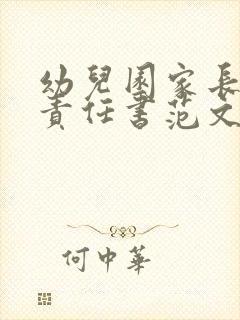 幼兒園家長
責任書范文
何中華